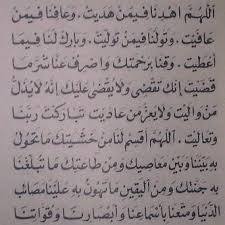 اللّهمّ اهْدِنَا فيمَنْ هَدَيت . وَعَافِنَا فيمَنْ
عَافَيْت . وَتَوَلَّنَا فيمَنْ تَوَلَّيْت . وَبَارِكْ لَنَا فِيمَا
أعْطَيت . وَقِنَا بِرَحْمَتِكَ وَاصْرِفْ عَنَّا شَرَّ مَا
قَضَيْتَ إنَّكَ تَقْضِى وَلَا يُقْضَى عَلَيْكَ إنَّهُ لَا يَذِلُّ
مَنْ وَالَيْتَ وَلَا يَعِزُّ مَنْ عَادَيْتَ تَبَارَكْتَ رَبَّنَا
وَتَعَالَيْتَ . اللّهُمَّ اقْسِمْ لَنَا مِنْ خَشْيَتِكَ مَا تَحُولُ
بِهِ بَيْنَنَا وَبَيْنَ مَعَاصِيكَ وَمِنْ طَاعَتِكَ مَا تُبَلِّغُنَا
بِهِ جَنَّتَكَ وَمِنَ الْيَقِينِ مَا تُهَوِّنُ بِهِ عَلَيْنَا مَصَائِبَ
الدُّنْيَا وَمَتِّعْنَا بِأَسْمَاعِنَا وَأَبْصَارِنَا وَقُوَّاتِنَا